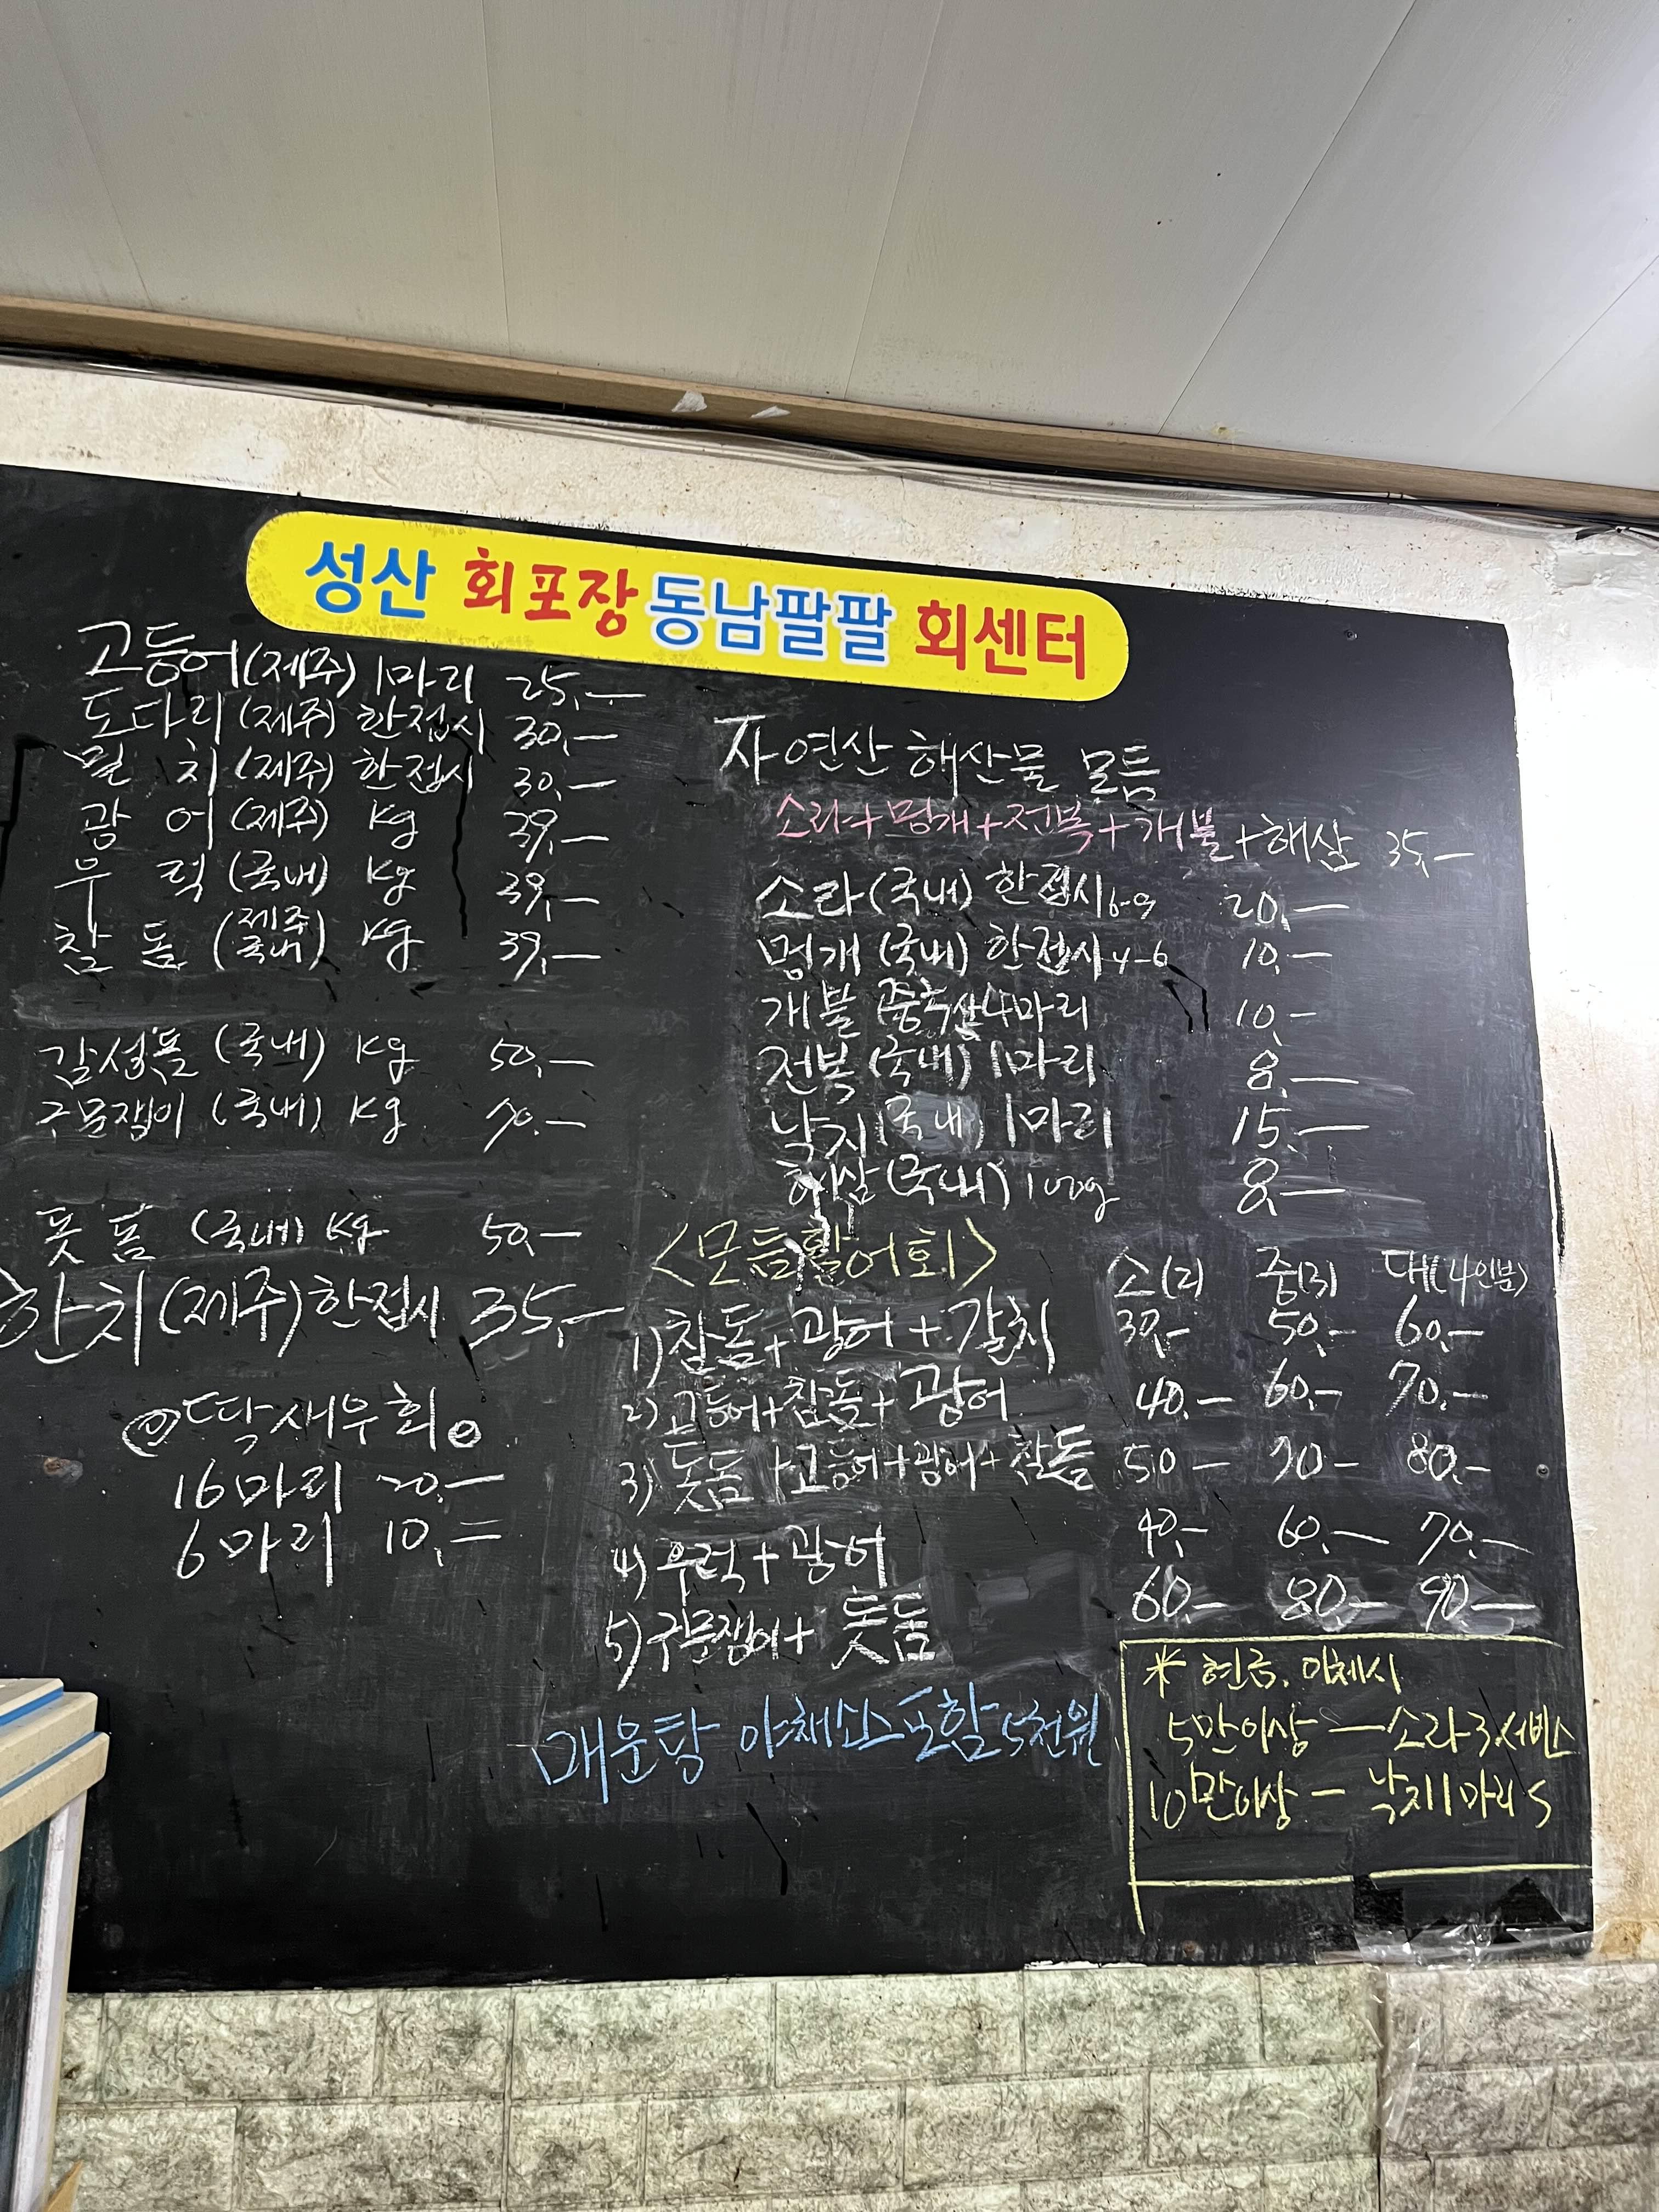 성산 회포장 동남팔팔 회센터
고등어(제주) 1마리 25,—
도다리(제주) 한접시 30,—
밀 치(제주) 한접시 30,—
광 어(제주) Kg 39,—
우 럭(국내) Kg 39,—
참 돔(제주 국내) Kg 39,—
감성돔(국내) Kg 50,—
구문쟁이(국내) Kg 70,—
돗 돔(국내) Kg 50,—
한치(제주)한접시 35,—
◎딱새우회◎
16마리 20,—
6마리 10,=
자연산 해산물 모듬
소라+멍개+전복+개불+해삼 35,—
소라(국내) 한접시 6-9 20,—
멍개(국내) 한접시 4-6 10,—
개불 중국산 4마리 10,—
전복(국내) 1마리 8,—
낙지(국내) 1마리 15,—
해삼(국내) 100g 8,—
<모듬활어회> 소(2) 중(3) 대(4인분)
1)참돔+광어+갈치 50,— 60,—
2)고등어+참돔+광어 40,— 60,— 70,—
3)돗돔+고등어+광어+참돔 50— 70— 80,—
4)우럭+광어 40,— 60,— 70,—
5)구문쟁이+돗돔 60,— 80,— 90,—
매운탕 야채소스포함 5천원
* 현금, 이체시
5만이상 — 소라3서비스
10만이상 — 낙지1마리 S